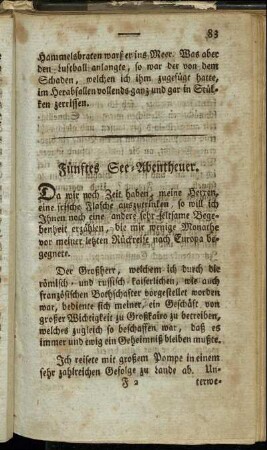 83
Hammelsbraten warf er ins Meer. Was aber
den Luftball anlangte, so war der von dem
Schaden, welchen ich ihm zugefügt hatte,
im Herabfallen vollends ganz und gar in Stük-
ken zerrissen.
Fünftes See-Abentheuer.
Da wir noch Zeit haben, meine Herren,
eine frische Flasche auszutrinken, so will ich
Ihnen noch eine andere sehr seltsame Bege-
benheit erzählen, die mir wenige Monathe
vor meiner letzten Rückreise nach Europa be-
gegnete.
Der Großherr, welchem ich durch die
römisch- und russisch-kaiserlichen, wie auch
französischen Bothschafter vorgestellet worden
war, bediente sich meiner, ein Geschäft von
großer Wichtigkeit zu Großkairo zu betreiben,
welches zugleich so beschaffen war, daß es
immer und ewig ein Geheimniß bleiben mußte.
Ich reisete mit großem Pompe in einem
sehr zahlreichen Gefolge zu Lande ab. Un-
F 2 terwe-